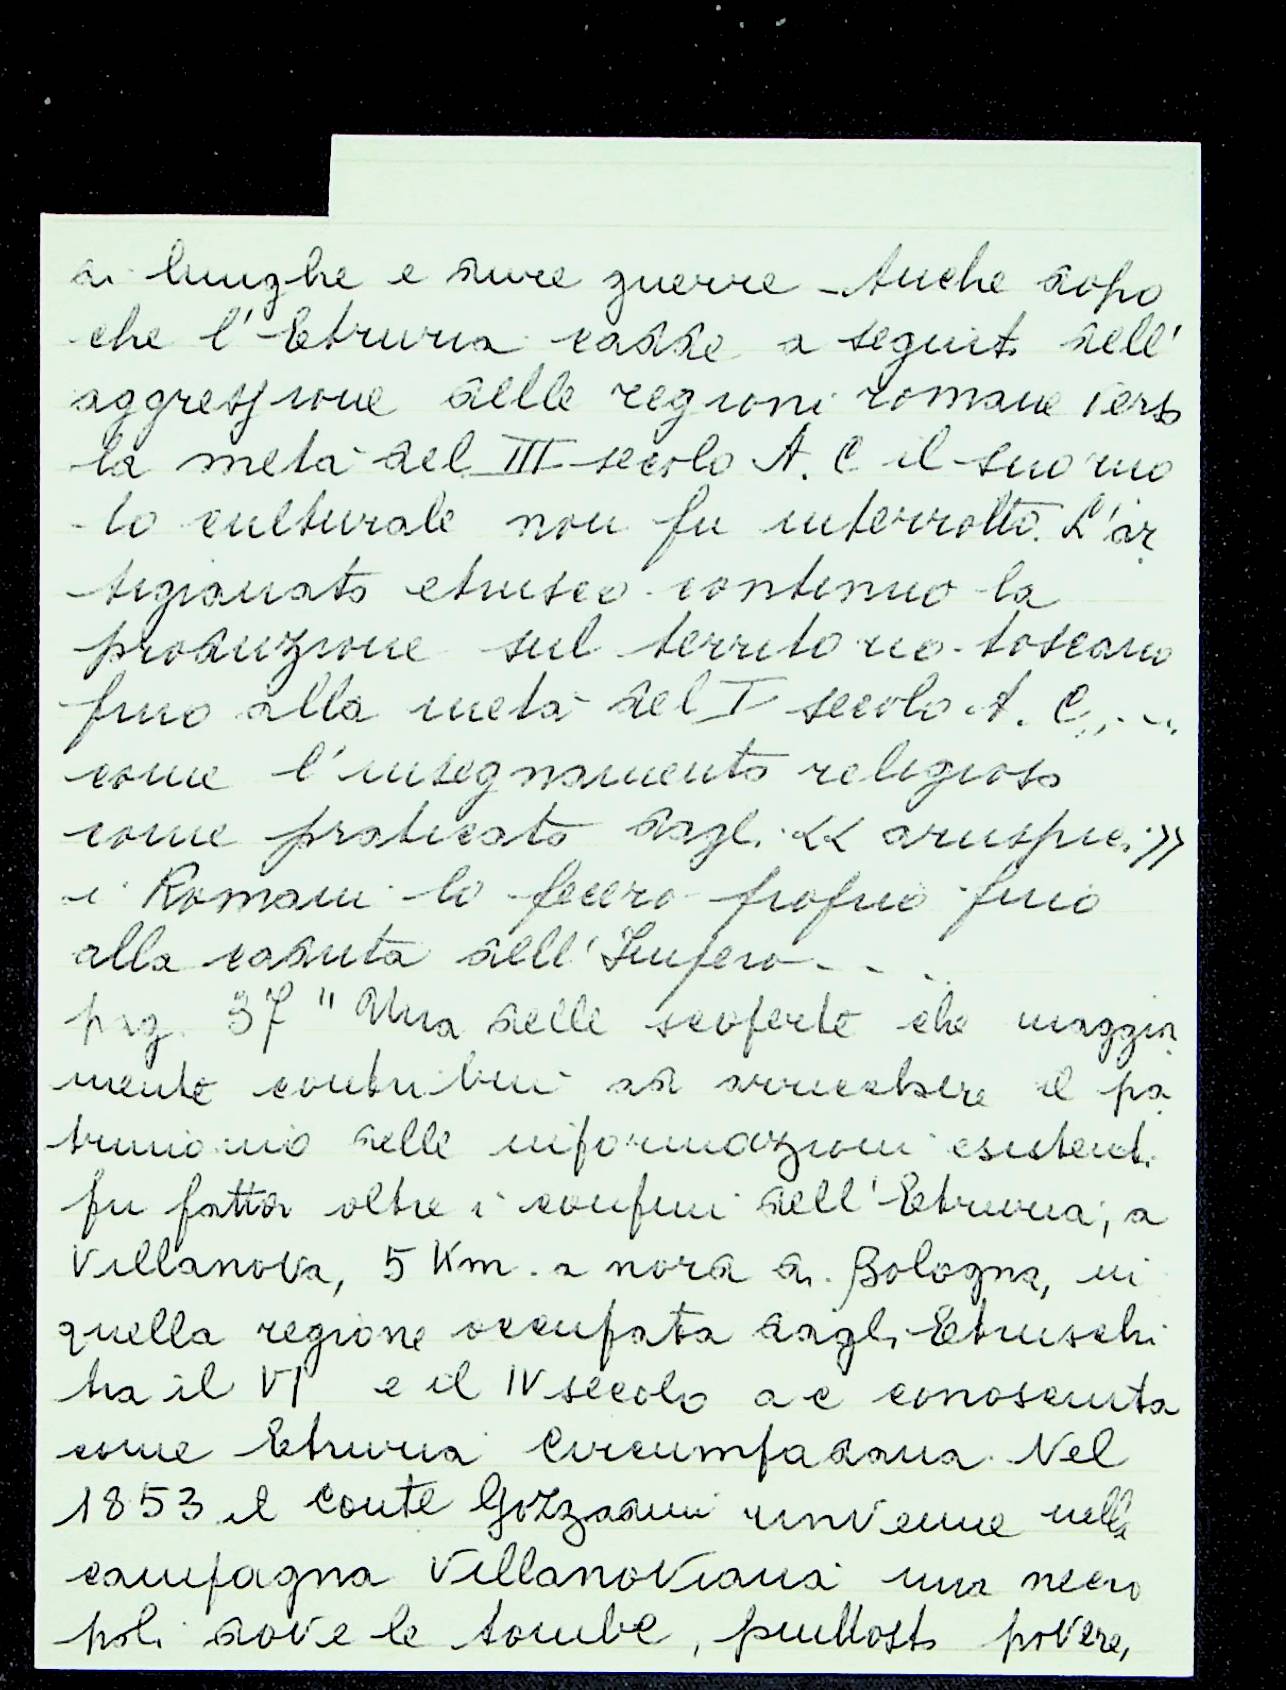 di lunghe e dure guerre - Anche dopo
che l'Etruria cadde a seguito dell'
aggressione delle regioni romane verso
la metà del III secolo A. C il suo ruo
lo culturale non fu interrotto. L'ar
tigianato etrusco continuò la
produzione sul territorio toscano
fino alla metà del I secolo A. C. ...
come l'insegnamento religioso
come praticato dagli << aruspici >>
i Romani lo fecero proprio fino
alla caduta dell'Impero - - .
pag. 37 " Una delle scoperte che maggior
mente contribuì ad arricchire il pa
trimonio delle informazioni esistenti
fu fatta oltre i confini dell'Etruria, a
Villanova, 5 Km. a nord di Bologna, in
quella regione occupata dagli Etruschi
tra il VI e il IV secolo a c conosciuta
come Etruria Circumpadana. Nel
1853 il conte Gozzadini rinvenne nella
campagna Villanoviana una necro
poli dove le tombe, piuttosto povere,